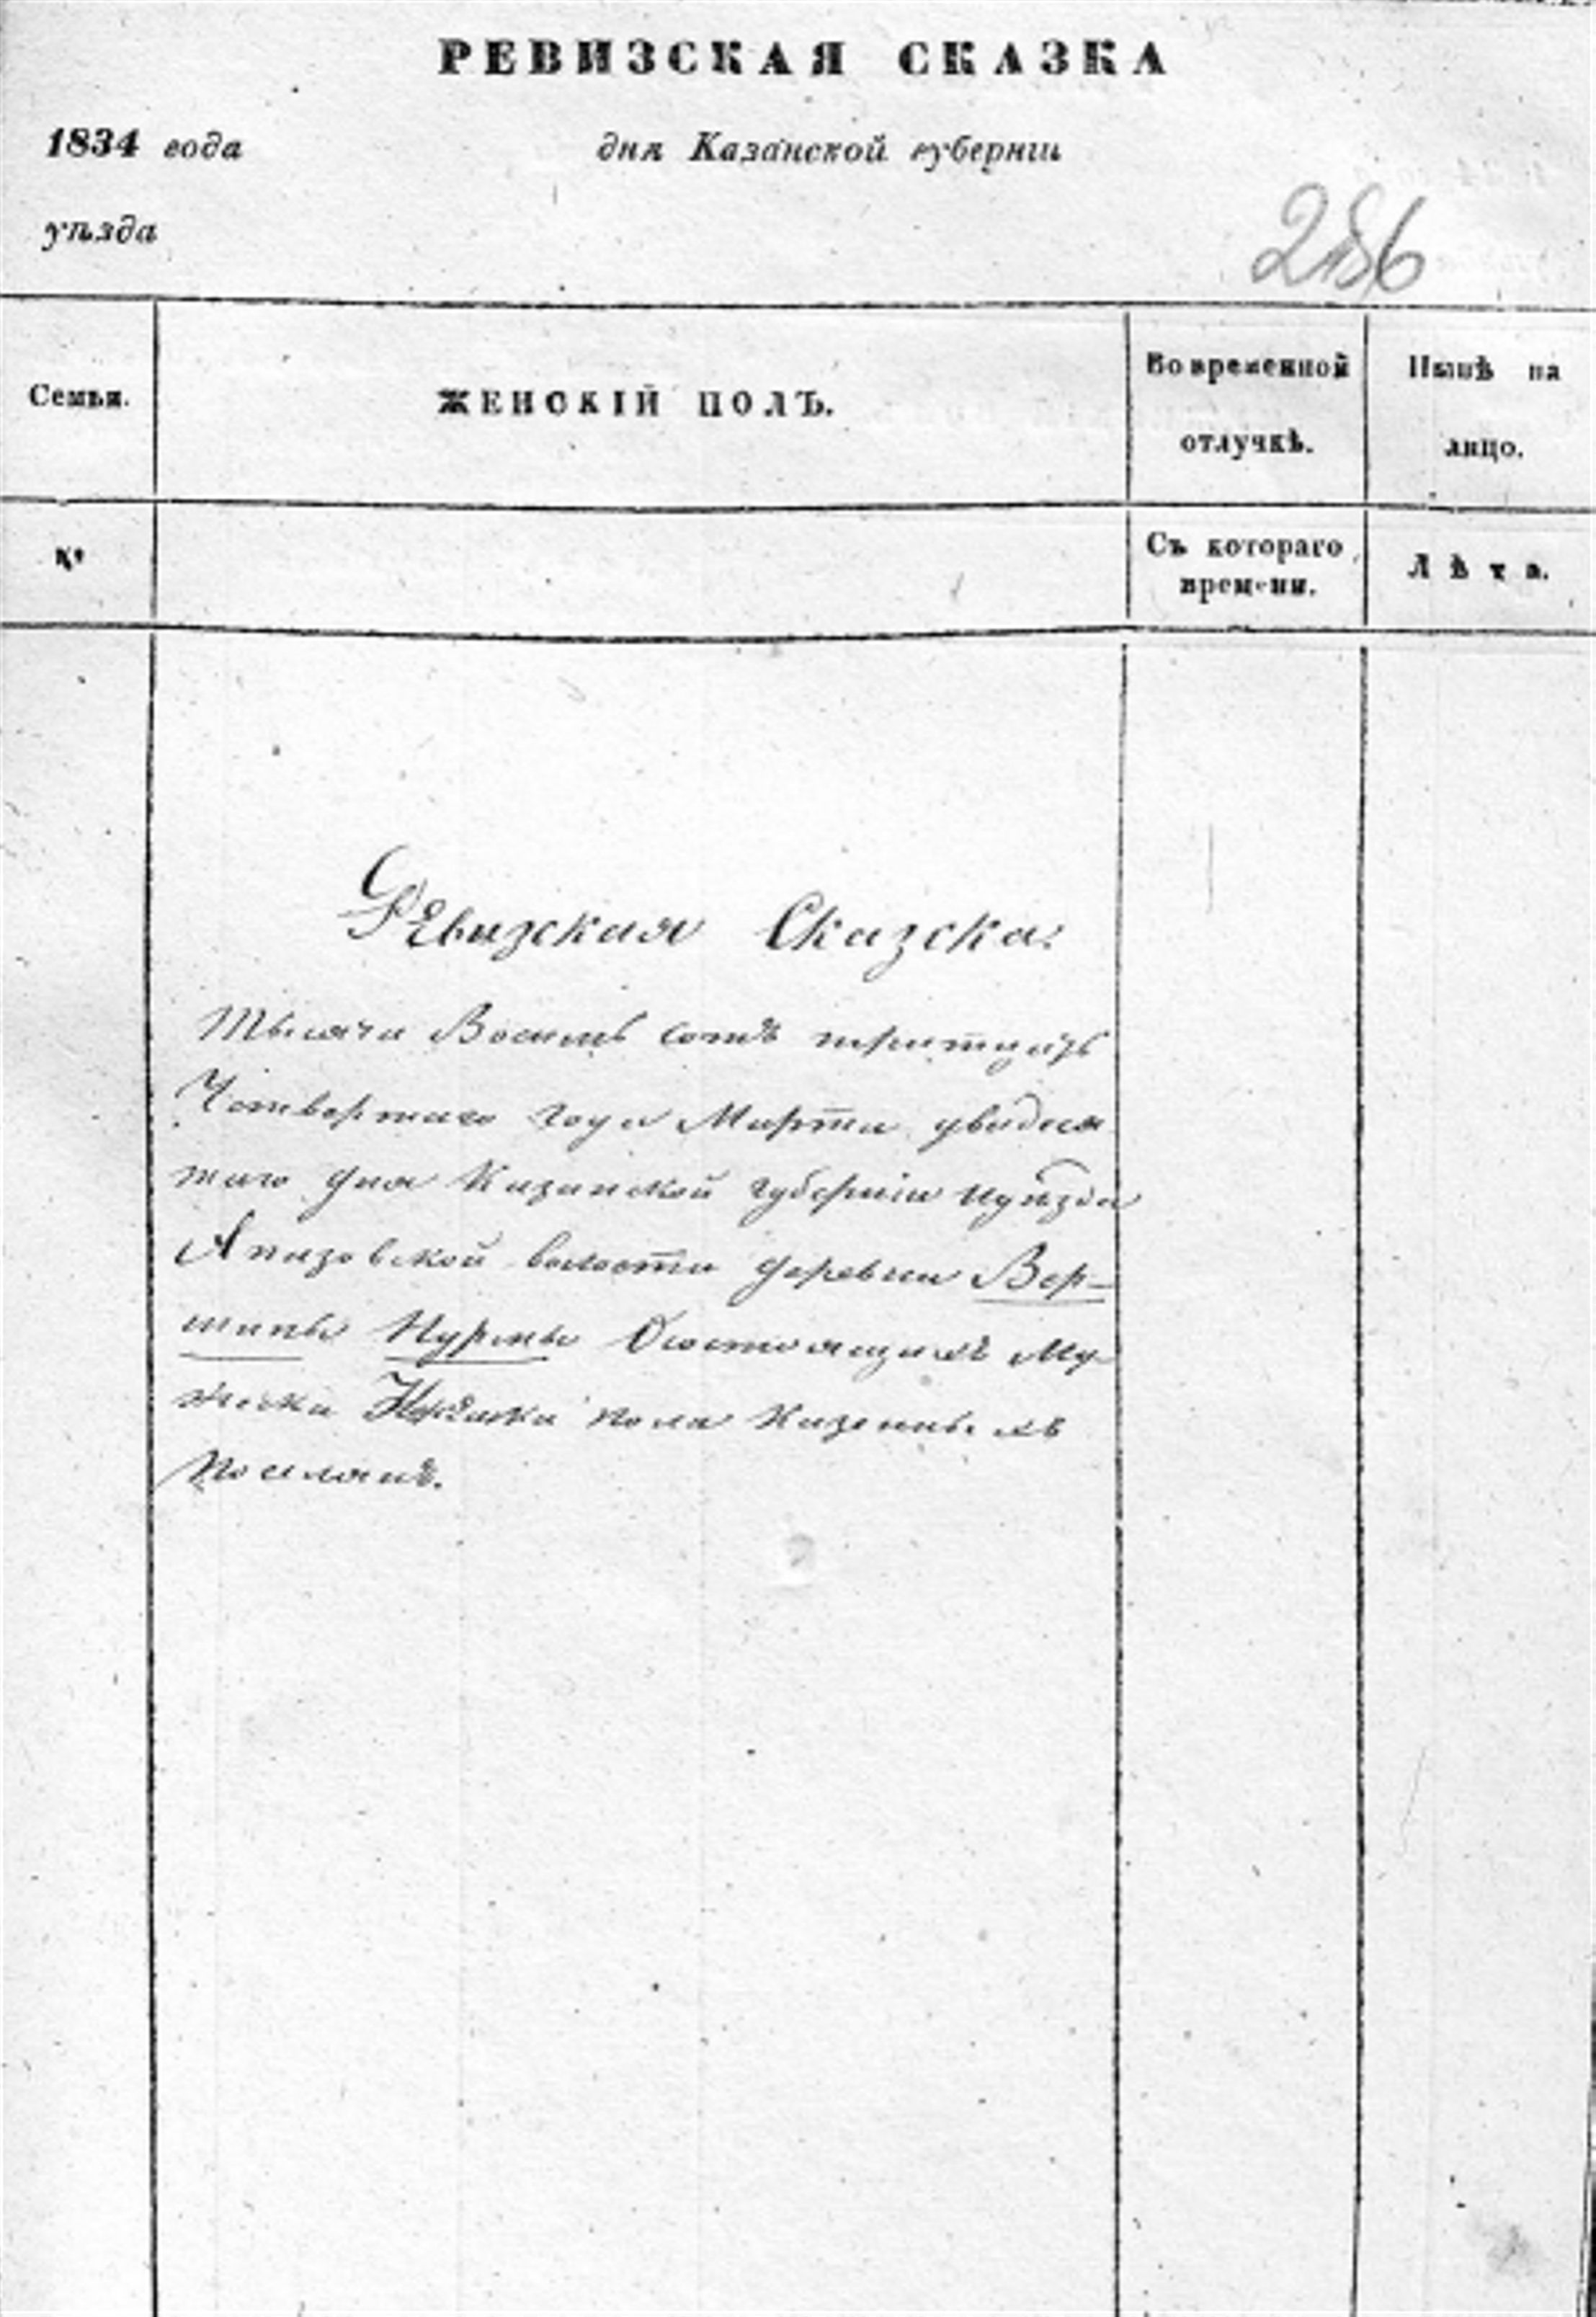 РЕВИЗСКАЯ СКАЗКА
1834 года дня Казанской губерніи
уѣзда
286
Семьи. ЖЕНСКІЙ ПОЛЪ. Во временной отлучкѣ. Нынѣ на лицо.
№ Съ котораго времени. Лѣта.
Ревизская Сказска:
Тысяча Восемь сотъ тритцать
Четвертаго года Марта двадеся
таго дня Казанской губерніи уѣзда
Апазовской волости деревни Вер-
шины Нурмы Состоящихъ Му-
жеска пола Казенныхъ
поселянъ.